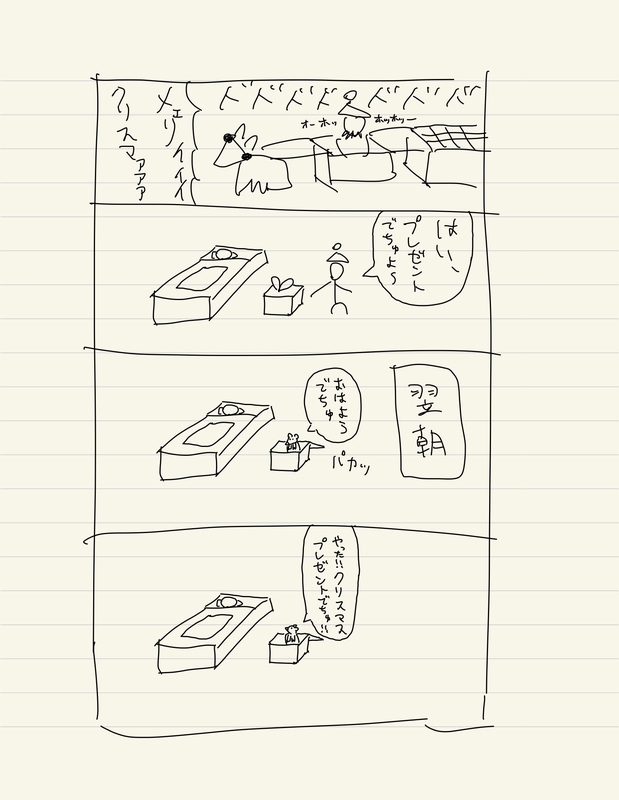 ドドドド ドドド
オーホッ ホッホッー
メェリィィィ
クリスマァァァ
はい、
プレゼント
でちゅよ〜
翌朝
おはよう
でちゅ
パカッ
やった!!クリスマス
プレゼントでちゅ!!